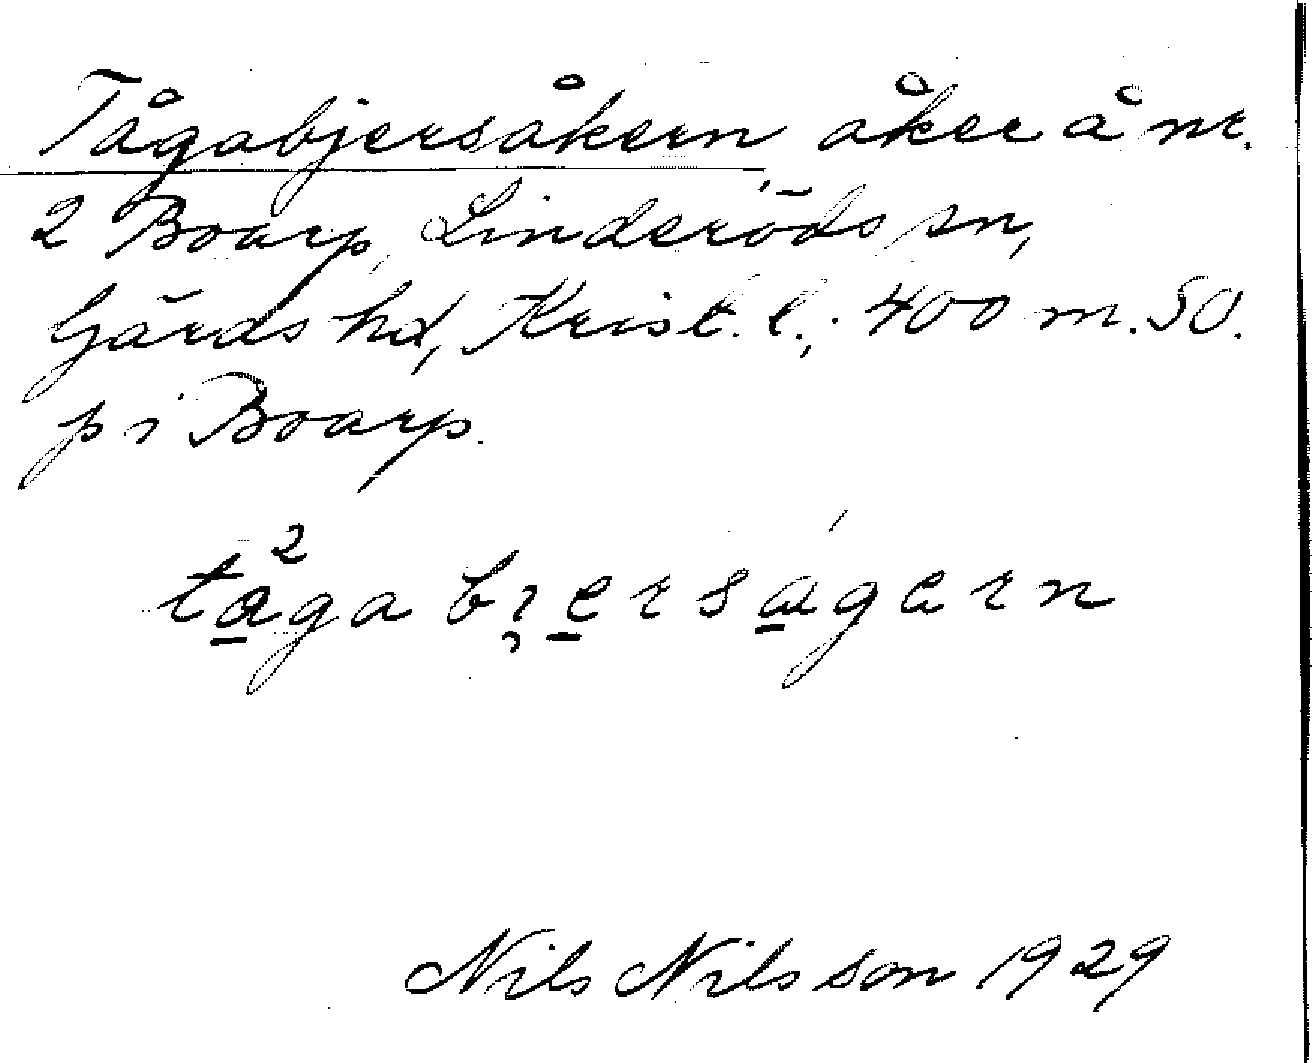 Tågabjersåkern, åker å nr.
2 Boarp, Linderöds sn,
Gärds hd, Krist. l.; 400 m. SO.
p i Boarp.
tå²gabi̯ersågern
Nils Nilsson 1929